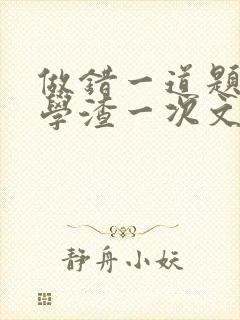 做錯一道題
學渣一次文
靜舟小妖